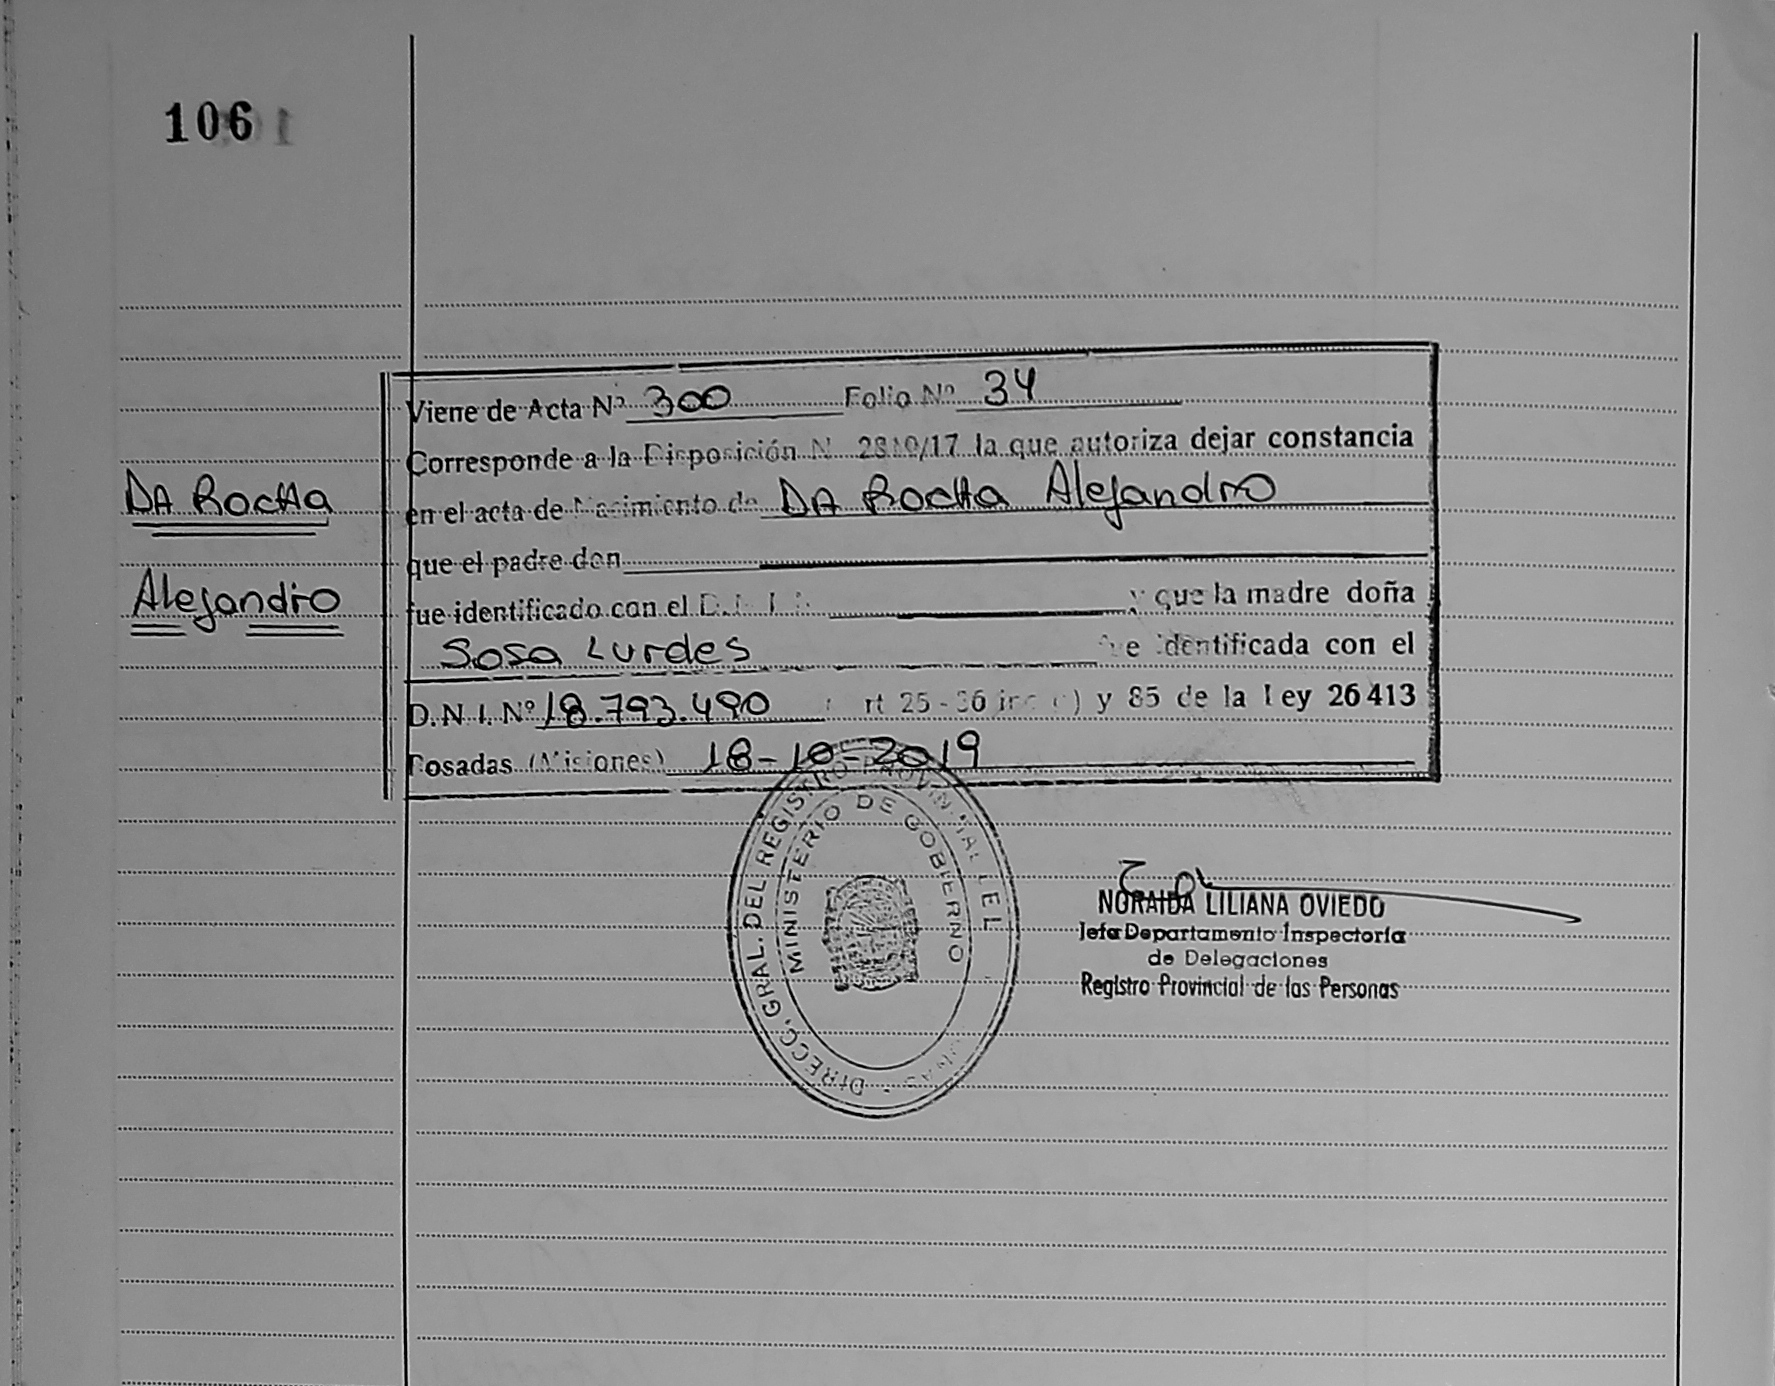 106
Viene de Acta Nº 300 Folio Nº 34
Corresponde a la Disposición N 2810/17 la que autoriza dejar constancia
en el acta de Nacimiento de DA ROCHA Alejandro
que el padre don
fue identificado con el y que la madre doña
Sosa Lurdes identificada con el
D.N.I. Nº 18.793.490 rt 25 - 36 inc c) y 85 de la Ley 26413
Posadas (Misiones) 18-10-2019
DA ROCHA
Alejandro
DIRECC. GRAL. DEL REGISTRO PROVINCIAL DE L
MINISTERIO DE GOBIERNO
NORAIDA LILIANA OVIEDO
Jefa Departamento Inspectoría
de Delegaciones
Registro Provincial de las Personas